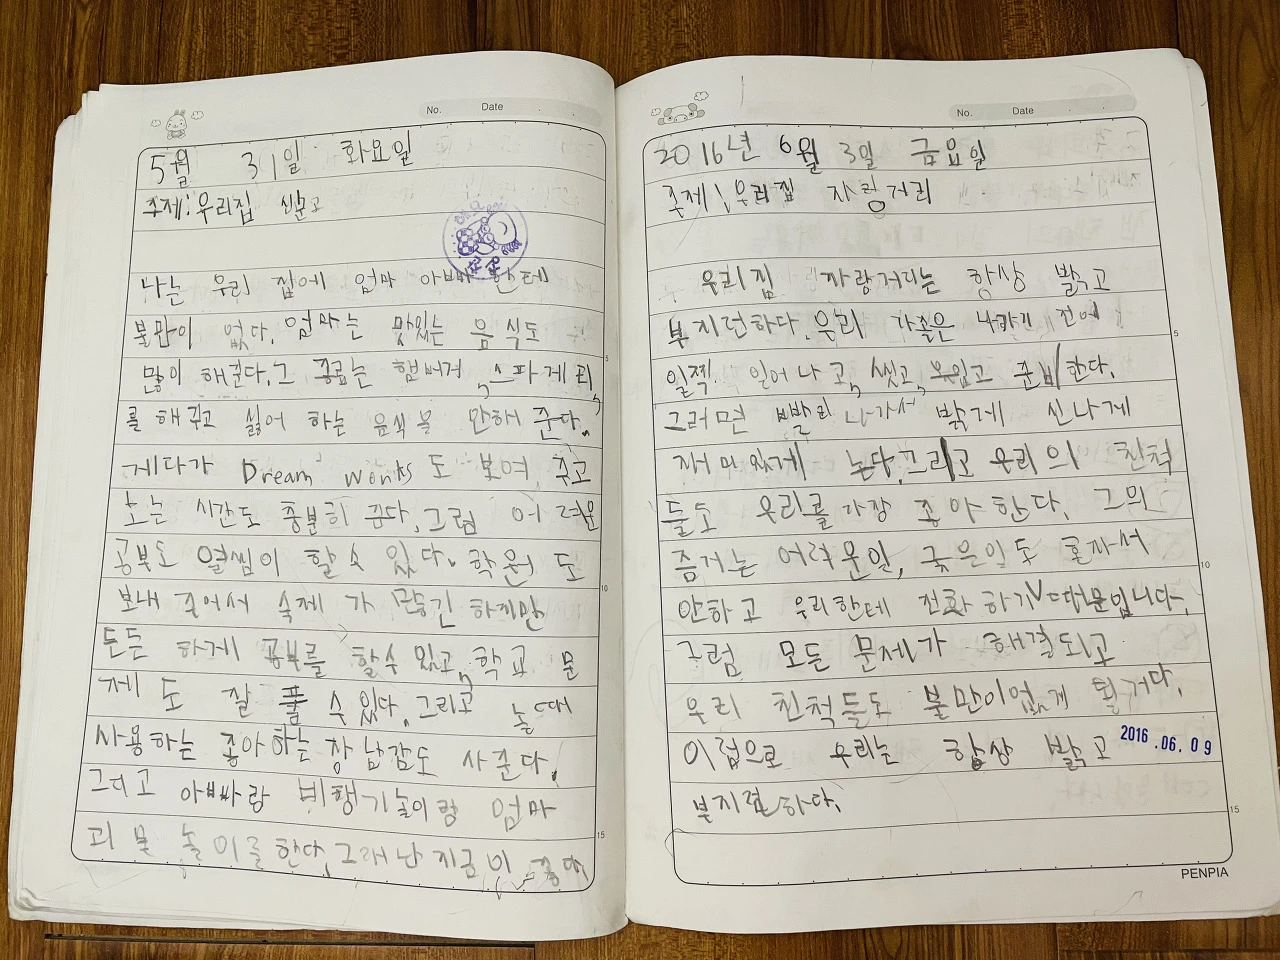 No. Date
5월 31일 화요일
주제: 우리집 신문고
나는 우리 집에 엄마 아빠 한테
불만이 없다. 엄마는 맛있는 음식도
많이 해준다. 그 종료는 햄버거, 스파게티,
를 해주고 싫어 하는 음식을 안해 준다.
게다가 Dream Works 도 보여 주고
노는 시간도 충분히 준다. 그럼 어려운
공부도 열씸이 할 수 있다. 학원 도
보내 주어서 숙제 가 하지만
든든 하게 공부를 할수 있고, 학교 문
제 도 잘 풀 수 있다. 그리고 놀때
사용하는 좋아하는 장남감도 사준다.
그리고 아빠랑 비행기놀이랑 엄마
괴물 놀이를 한다. 그래 난 지금이 좋다
No. Date
2016년 6월 3일 금요일
주제: 우리집 자랑거리
우리집 자랑거리는 항상 밝고
부지런하다. 우리 가족은 나가긴 전에
일찍 일어나고, 씻고, 옷입고 준비한다.
그러면 빨리 나가서 밝게 신나게
재미있게 논다. 그리고 우리의 친척
들도 우리를 가장 좋아한다. 그의
증거는 어려운일, 궂은일도 혼자서
안하고 우리한테 전화 하기 때문입니다.
그럼 모든 문제가 해결되고
우리 친척들도 불만이없게 될거다.
이럼으로 우리는 항상 밝고
2016.06.09
부지런하다.
PENPIA
5
10
15
5
10
15